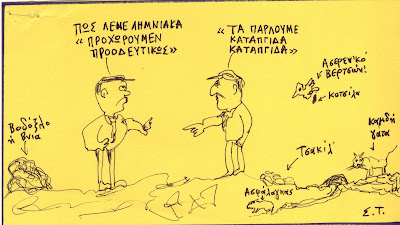 ΠΩΣ ΛΕΝΕ ΛΗΜΝΙΑΚΑ
«ΠΡΟΧΩΡΟΥΜΕΝ
ΠΡΟΟΔΕΥΤΙΚΩΣ»
«ΤΑ ΠΑΡΛΟΥΜΕ
ΚΑΤΑΠΓΙΔΑ
ΚΑΤΑΠΓΙΔΑ»
Ασερνικό
Βερτσιών
Κοτσίλα
Βοδόξλο
ή
Βνιά
Τσακίλ'
Καμδή
γατα
Ασφάλαγκας
Σ.Τ.